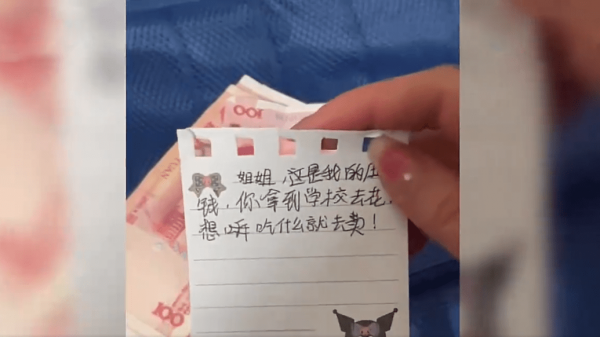 姐姐,这是我的压
钱,你拿到学校去花,
想吃什么就去卖!
100
100